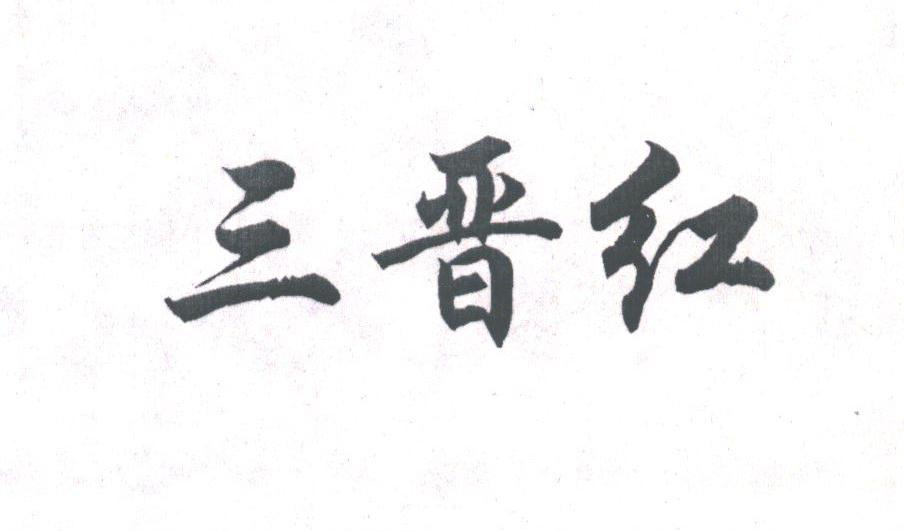 三晋红